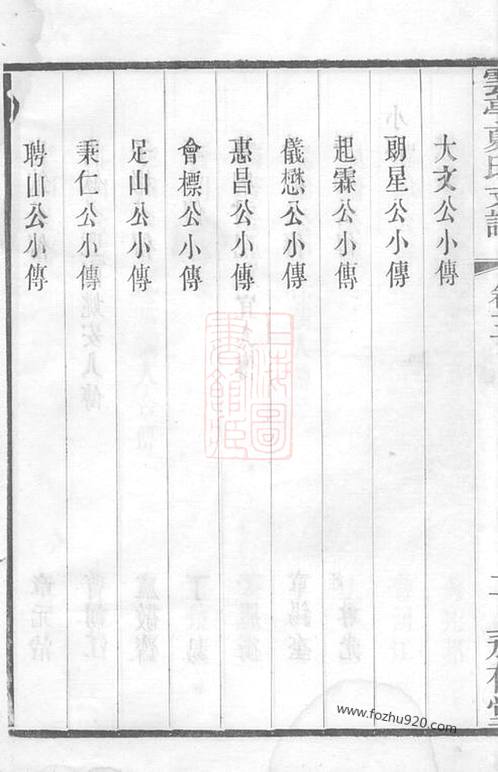 大文公小傳
朗星公小傳
起霖公小傳
儀懋公小傳
惠昌公小傳
會標公小傳
足山公小傳
秉仁公小傳
聘山公小傳
上海圖書館藏
www.fozhu920.com